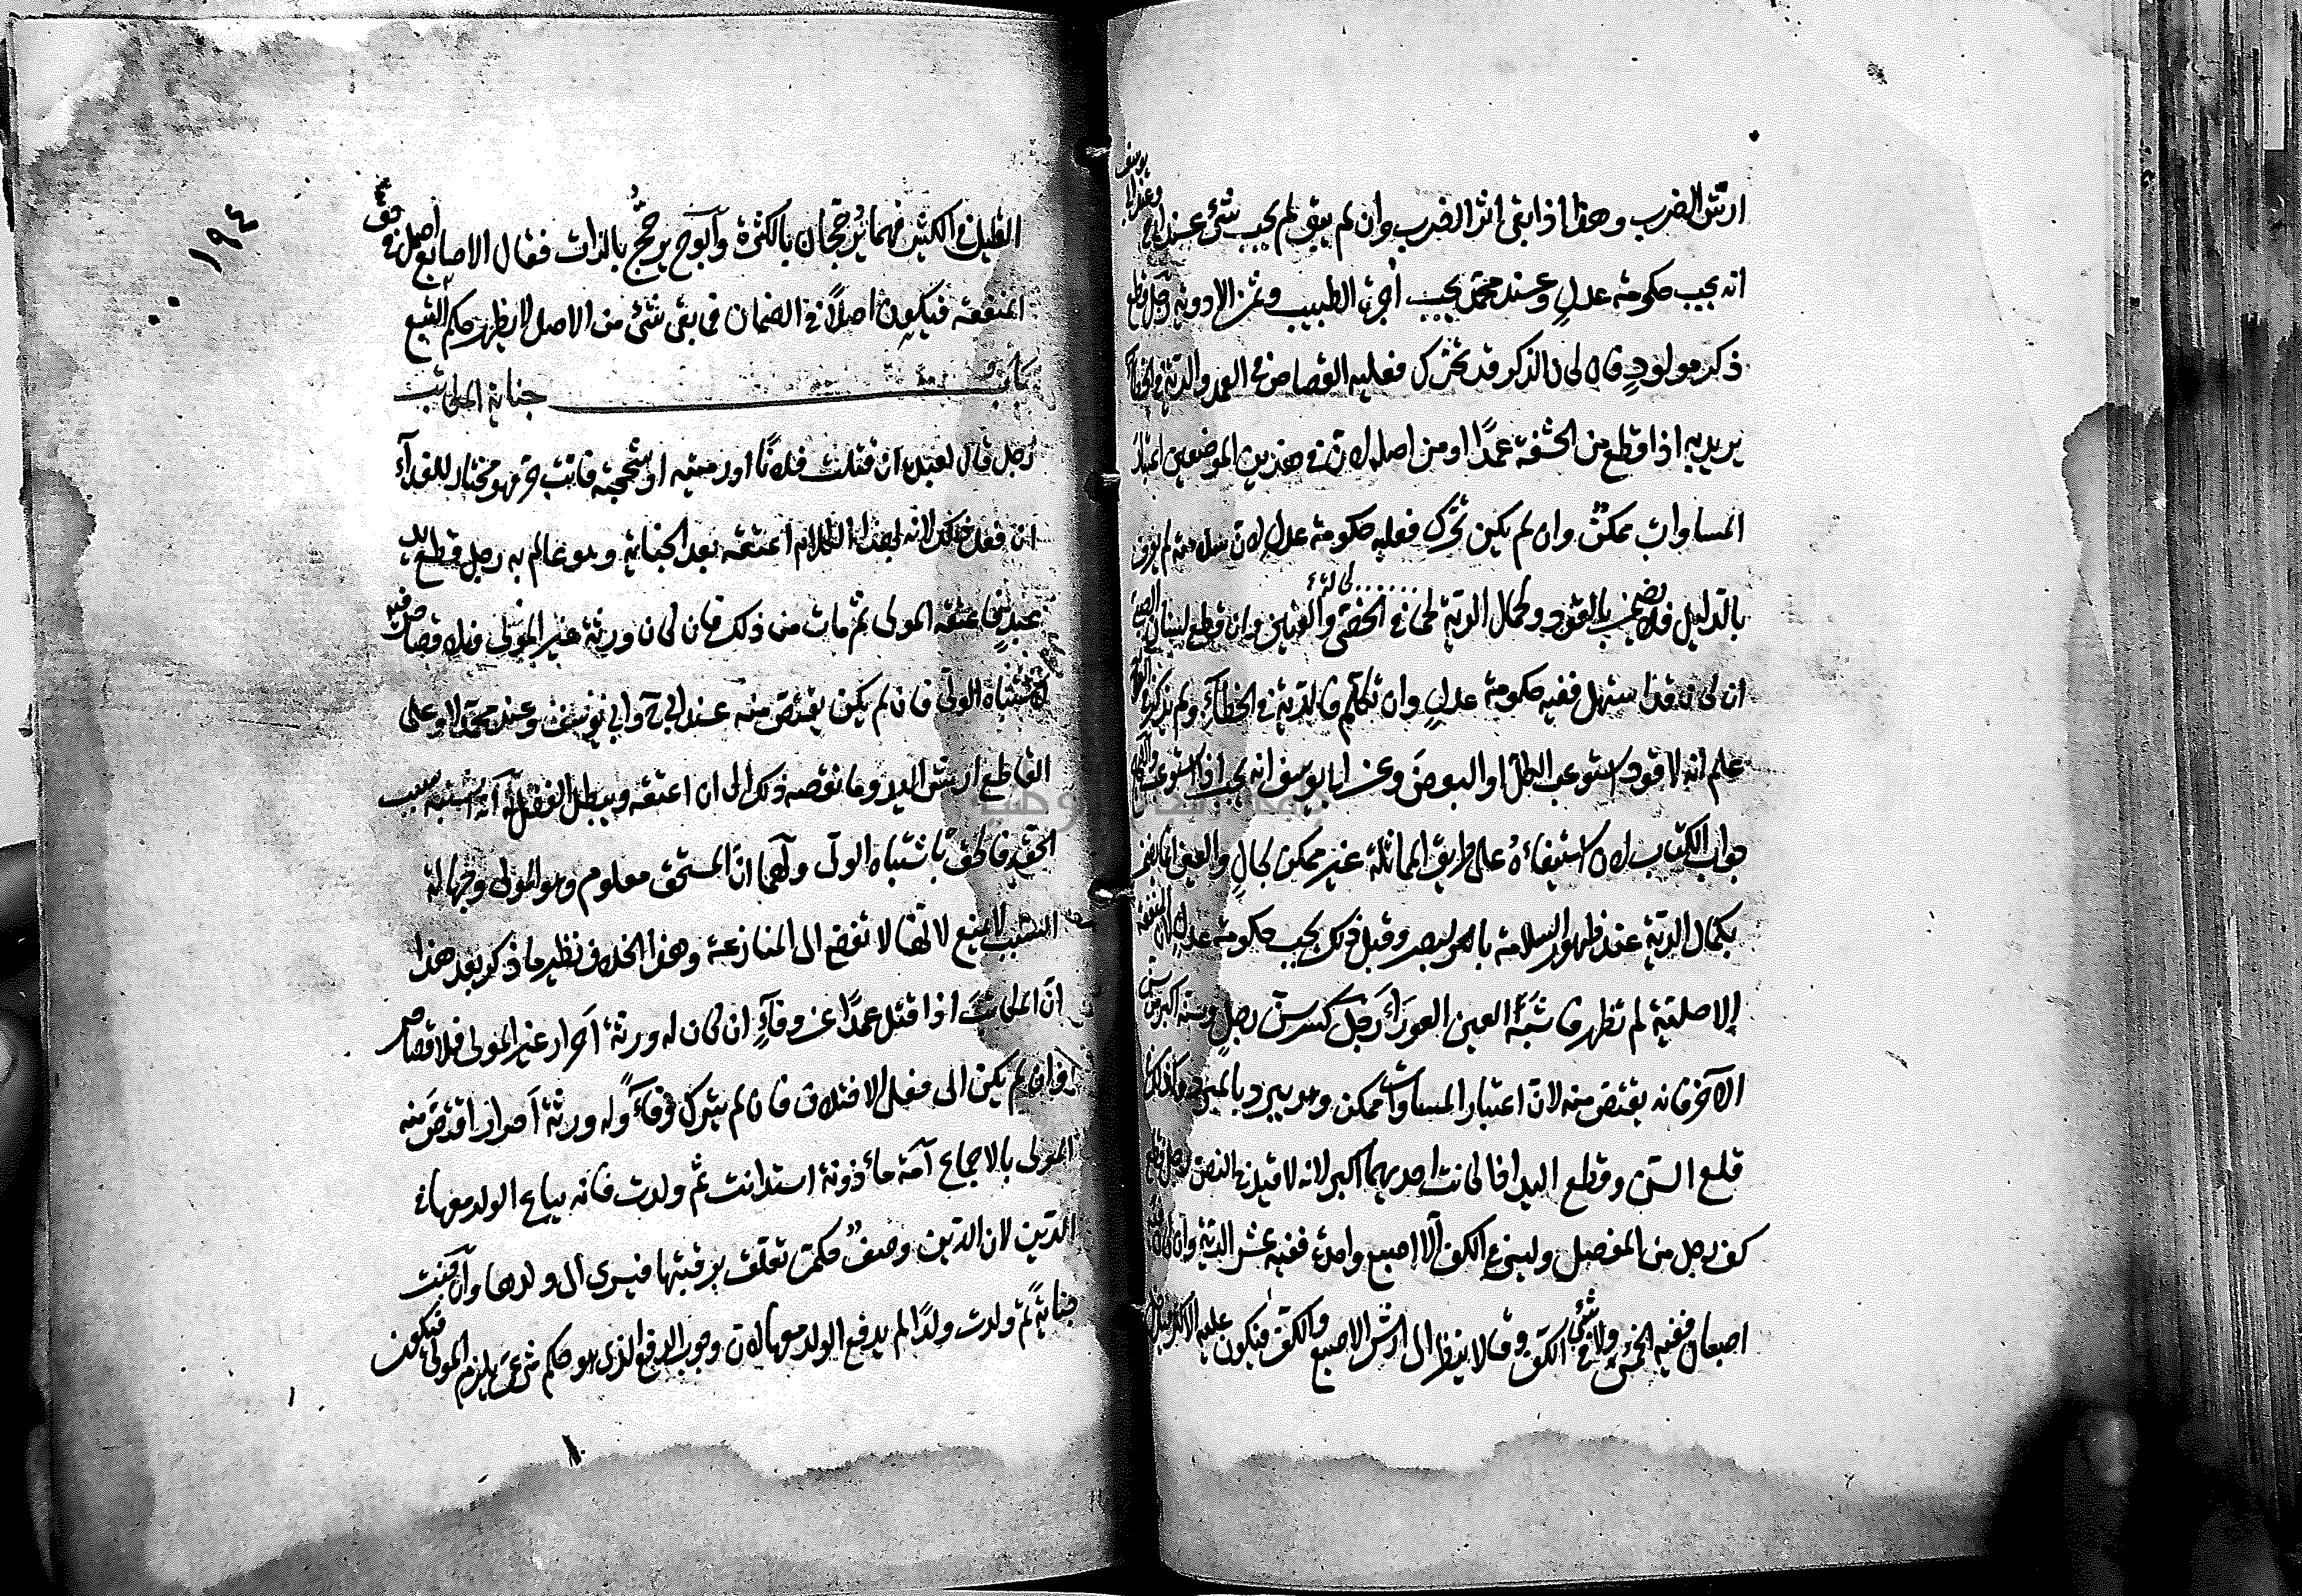 ارش الضرب وهذا اذا بقى اثر الضرب وان لم يبق لم يجب شئ عند ابى ح وعند ابى يوسف
انه يجب حكومة عدل وعند محمد يجب اجرة الطبيب وثمن الادوية رجل قطع
ذكر مولود فان كان الذكر قد تحرك فعليه القصاص في العمد والدية في الخطأ
يريد به اذا قطع من الحشفة عمدًا او من اصله لان في هذين الموضعين اعتبار
المساوات ممكن وان لم يكن تحرك فعليه حكومة عدل لان سلامته لم يعرف
بالدليل فلا يجب القود وكمال الدية كما في الخصى والعنين وان قطع لسان الصبى
ان كان قد استهل ففيه حكومة عدل وان تكلم فالدية في الخطأ ولم يذكر
علم انه لا قود استوعب الكل او البعض وعن ابى يوسف انه يجب اذا استوعب
جواب الكتاب لان استيفاءه على طريق المماثلة غير ممكن بحال والعين
بكمال الدية عند ظهور السلامة بالبصر وقبل ذلك يجب حكومة عدل لان المنفعة
الاصلية لم تظهر فاشبه العين العوراء رجل كسر سن رجل وسنه اكبر من سن
الآخر فانه يقتص منه لان اعتبار المساوات ممكن وقد يبرد بالمبرد وكذلك
قلع السن وقطع اليد اذا كانت احديهما اكبر لانه لا قيد في النص رجل قطع
كف رجل من المفصل وليس في الكف الا اصبع واحدة ففيه عشر الدية وان كان فيه
اصبعان ففيه الخمس ولا شئ في الكف وقالا ينظر الى ارش الاصبع والكف فيكون عليه الاكثر ويدخل
١٩٤
القليل في الكثير فهما يرجحان بالكثرة وابو ح يرجح بالذات فقال الاصابع اصل في حق
المنفعة فيكون اصلاً في الضمان فما بقى شئ من الاصل لا يظهر حكم التبع
باب جناية المكاتب
رجل قال لعبده ان قتلت فلانًا او رميته او شججته فانت حر فهو مختار للفداء
ان فعل ذلك لانه بهذا الكلام اعتقه بعد الجناية وهو عالم به رجل قطع يد
عبد فاعتقه المولى ثم مات من ذلك فان كان ورثة غير المولى فلا قصاص فيه
لاشتباه الولى فان لم يكن يقتص منه عند ابى ح وابى يوسف وعند محمد لا وعلى
القاطع ارش اليد وما نقصه ذلك الى ان اعتقه ويبطل الفضل له انه اشتبه سبب
الحق فالحق باشتباه الولى ولهما ان المستحق معلوم وهو المولى وجهالة
السبب لا يمنع لانها لا تفضى الى المنازعة وهذا الخلاف نظير ما ذكر بعد هذا
ان المكاتب اذا قتل عمدًا عن وفاء ان كان له ورثة احرار غير المولى فلا قصاص
فان لم يكن الى فعلى الاختلاف فان لم يترك وفاءً وله ورثة احرار اقتص منه
المولى بالاجماع امة مأذونة استدانت ثم ولدت فانه يباع الولد معها في
الدين لان الدين وصف حكمى تعلق برقبتها فيسرى الى ولدها وان جنت
جناية ثم ولدت ولدًا لم يدفع الولد معها لان وجوب الدفع الذى هو حكم شرعى يلزم المولى فيكون